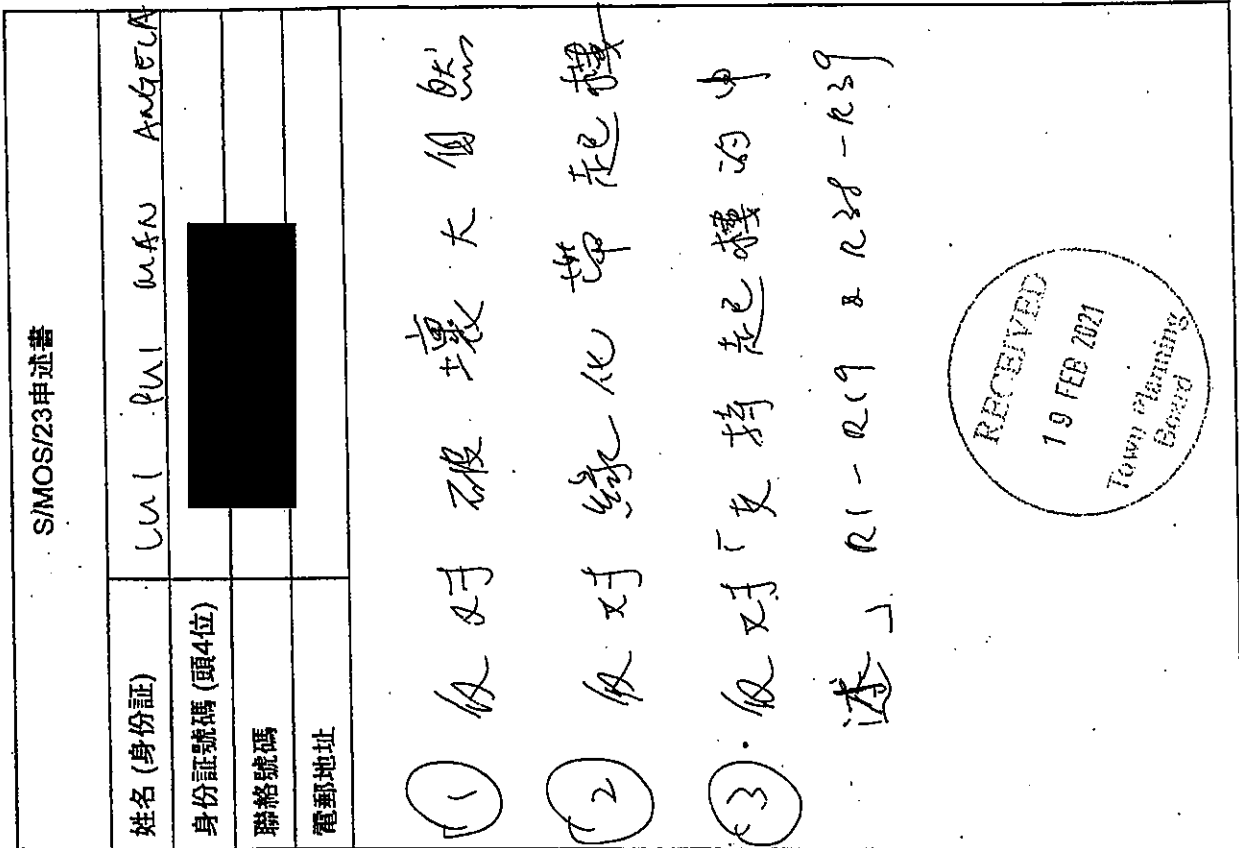 S/MOS/23申述書
姓名 (身份証) LUI PUI MAN ANGELA
身份証號碼 (頭4位)
聯絡號碼
電郵地址
(1) 反对 破壞 大自然
(2) 反对 綠化帶 起樓
(3). 反对「支持起樓的申
述」 R1 - R19 & R38 - R39
RECEIVED
19 FEB 2021
Town Planning
Board